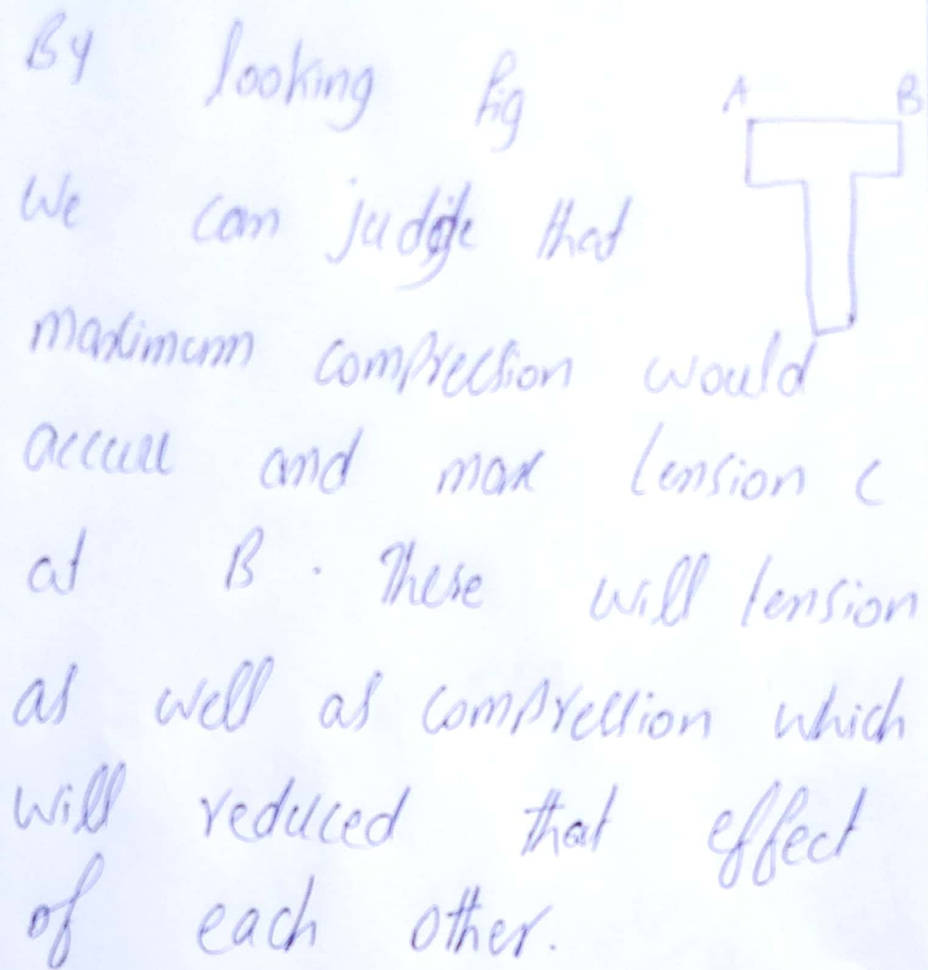 By looking fig
A B
We can judge that
maximum compression would
accure and max tension C
at B. These will tension
as well as compression which
will reduced that effect
of each other.